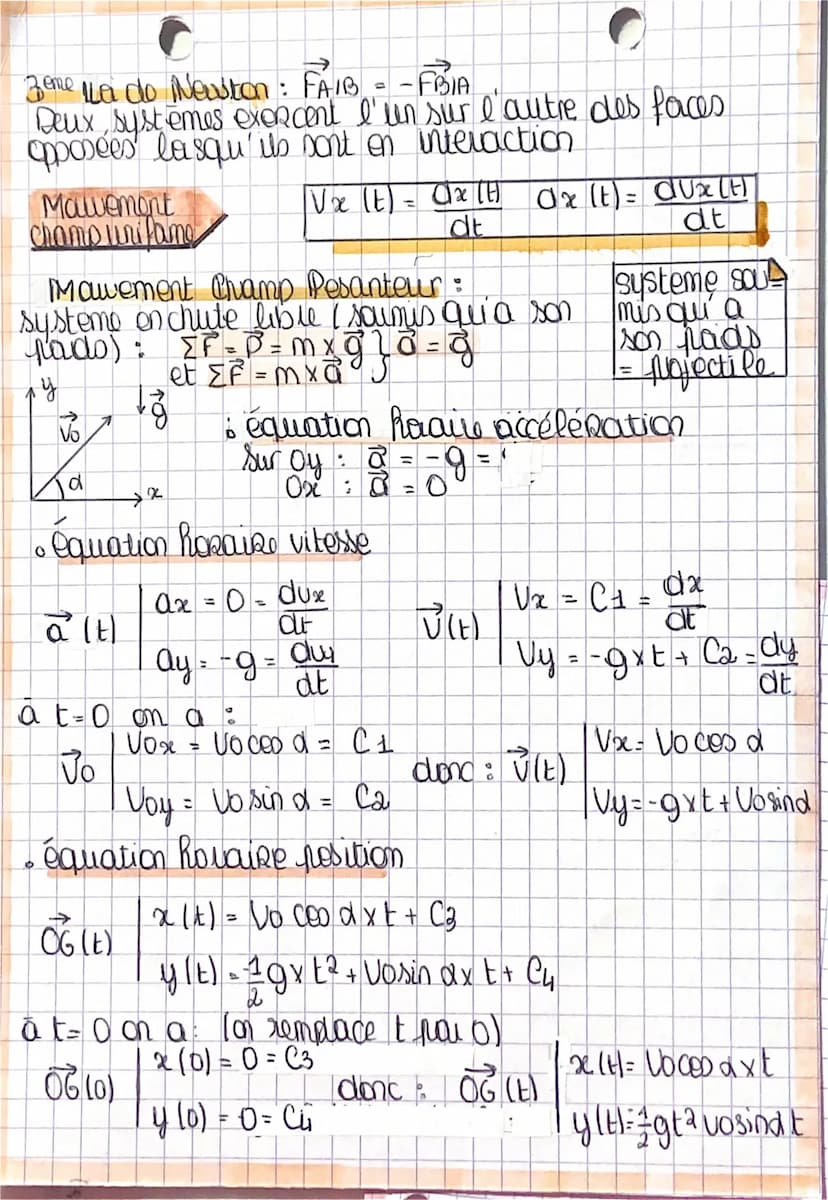 3ème Loi de Newton : F⃗A/B = - F⃗B/A
Deux systèmes exercent l'un sur l'autre des forces
opposées lorsqu'ils sont en interaction
Mouvement
champ uniforme
Vx (t) = dx (t)/dt   ax (t) = dVx (t)/dt
Mouvement Champ Pesanteur :
système en chute libre (soumis qu'à son
poids) : ΣF⃗ = P⃗ = m x g⃗ } a⃗ = g⃗
et ΣF⃗ = m x a⃗
système sou-
mis qu'à
son poids
= projectile
y
V⃗o
↓g⃗
α
x
équation horaire accélération
Sur Oy : a⃗ = -g =
Ox : a⃗ = 0
• équation horaire vitesse
a⃗ (t) | ax = 0 = dvx/dt
ay = -g = dvy/dt
V⃗(t) | Vx = C1 = dx/dt
Vy = -g x t + C2 = dy/dt
à t=0 on a :
V⃗o | Vox = Vo cos α = C1
Voy = Vo sin α = C2
donc : V⃗(t) | Vx = Vo cos α
Vy = -g x t + Vo sin α
• équation horaire position
OG⃗ (t) | x (t) = Vo cos α x t + C3
y (t) = -1/2 g x t² + Vo sin α x t + C4
à t=0 on a : (on remplace t par 0)
OG⃗ (0) | x (0) = 0 = C3
y (0) = 0 = C4
donc : OG⃗ (t) | x (t) = Vo cos α x t
y (t) = -1/2 gt² vo sin α t